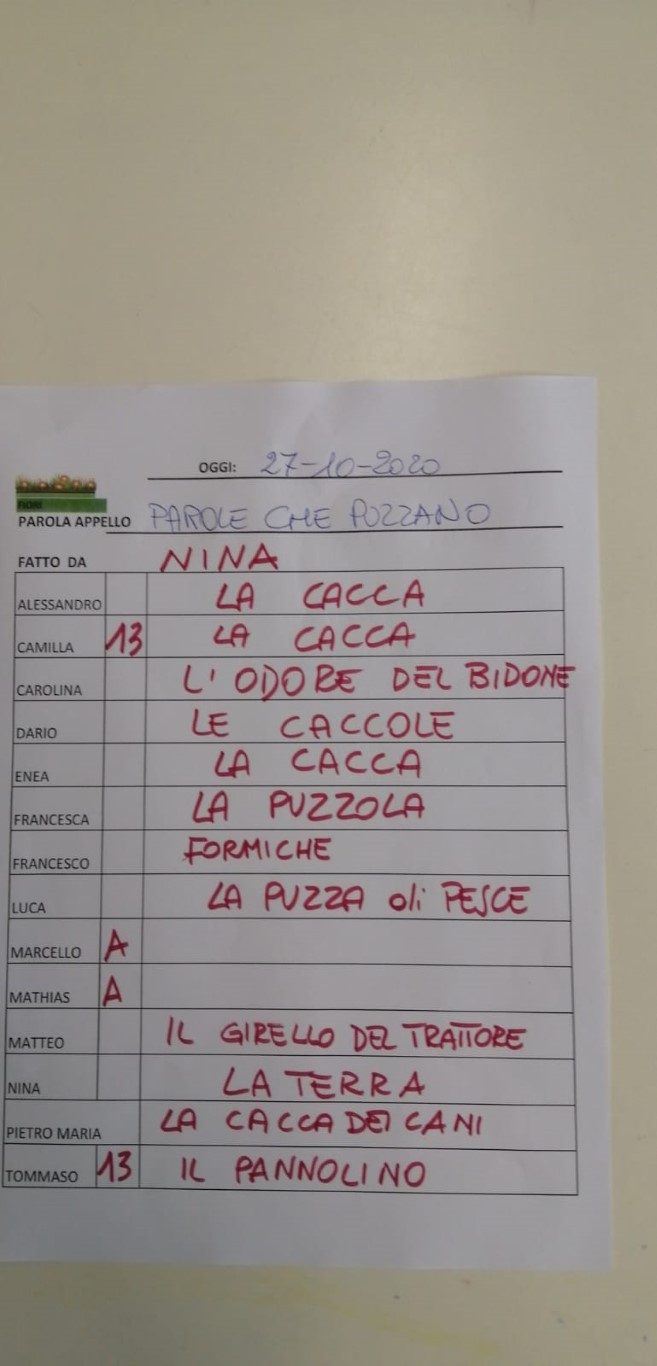 OGGI: 27-10-2020
FIORI
PAROLA APPELLO PAROLE CHE PUZZANO
FATTO DA NINA
ALESSANDRO LA CACCA
CAMILLA 13 LA CACCA
CAROLINA L'ODORE DEL BIDONE
DARIO LE CACCOLE
ENEA LA CACCA
FRANCESCA LA PUZZOLA
FRANCESCO FORMICHE
LUCA LA PUZZA di PESCE
MARCELLO A
MATHIAS A
MATTEO IL GIRELLO DEL TRATTORE
NINA LA TERRA
PIETRO MARIA LA CACCA DEI CANI
TOMMASO 13 IL PANNOLINO